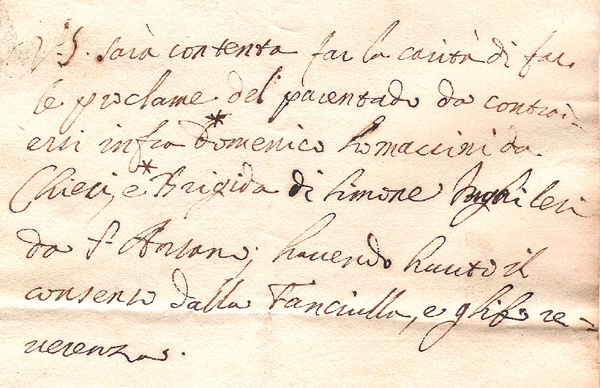 V. S. sarà contenta far la carità di far
le proclame del parentado da contra-
ersi infra Domenico Lomaccini da
Chieci, e Brigida di Simone Inghileri
da S. Ansano; havendo hauto il
consenso dalla Fanciulla, e gli fo re-
verenza.